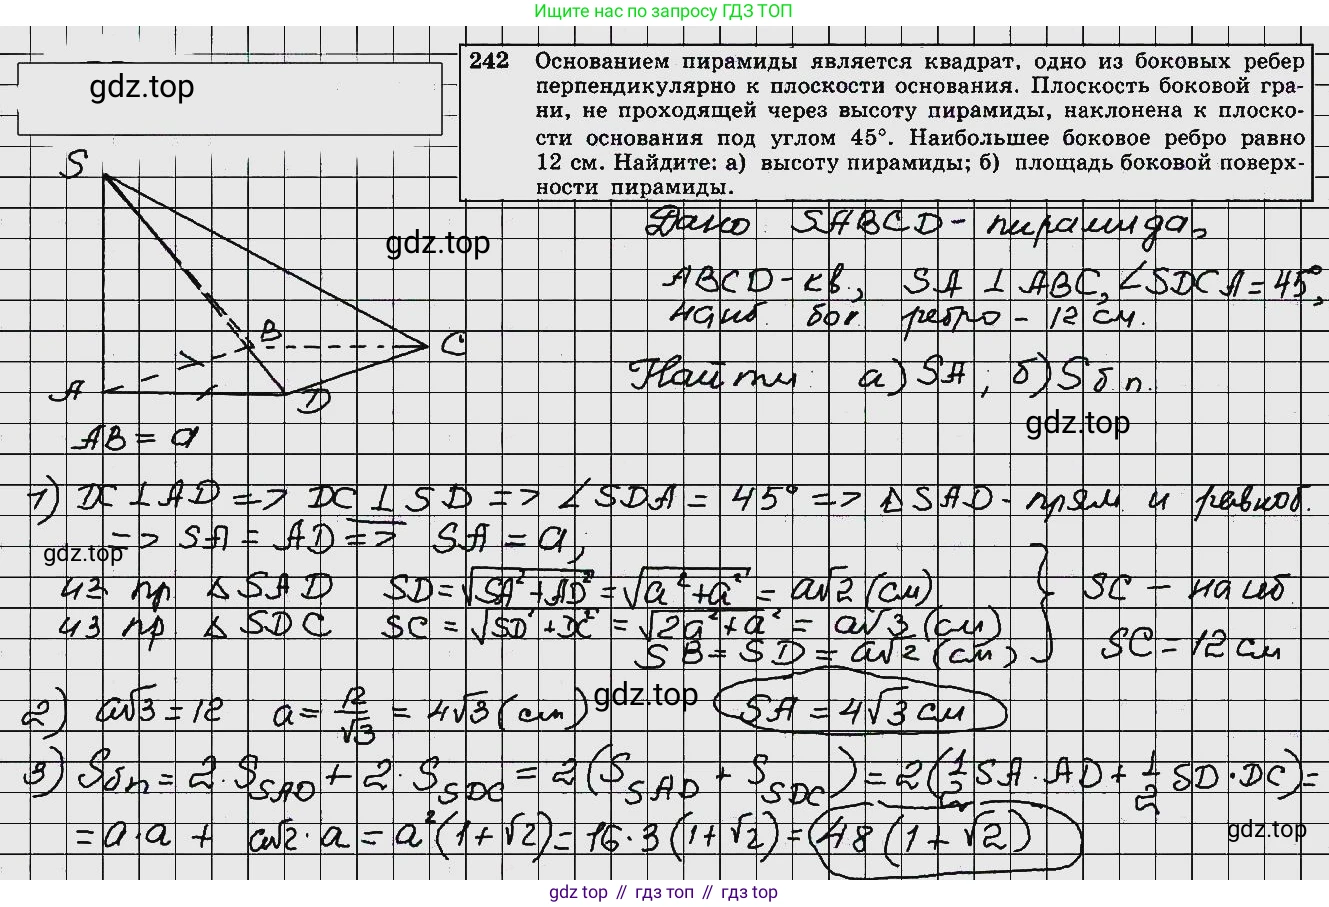 Ищите нас по запросу ГДЗ ТОП
gdz.top
242 Основанием пирамиды является квадрат, одно из боковых ребер
перпендикулярно к плоскости основания. Плоскость боковой гра-
ни, не проходящей через высоту пирамиды, наклонена к плоско-
сти основания под углом 45°. Наибольшее боковое ребро равно
12 см. Найдите: а) высоту пирамиды; б) площадь боковой поверх-
ности пирамиды.
S
gdz.top
B
C
A
D
Дано SABCD - пирамида,
ABCD - кв., SA ⊥ ABC, ∠SDCA = 45°,
наиб. бок. ребро - 12 см.
Найти: а) SA; б) Sб.п.
gdz.top
AB = a
1) DC ⊥ AD => DC ⊥ SD => ∠SDA = 45° => △SAD - прям и равноб.
=> SA = AD => SA = a,
gdz.top
из пр △SAD SD = √SA² + AD² = √a² + a² = a√2 (см)
из пр △SDC SC = √SD² + DC² = √2a² + a² = a√3 (см)
SB = SD = a√2 (см)
SC - наиб
SC = 12 см
gdz.top
2) a√3 = 12 a = 12/√3 = 4√3 (см) SA = 4√3 см
3) Sбп = 2·S_SAD + 2·S_SDC = 2(S_SAD + S_SDC) = 2(1/2 SA·AD + 1/2 SD·DC) =
= a·a + a√2·a = a²(1+√2) = 16·3(1+√2) = 48(1+√2)
gdz.top
gdz top // гдз топ // gdz top